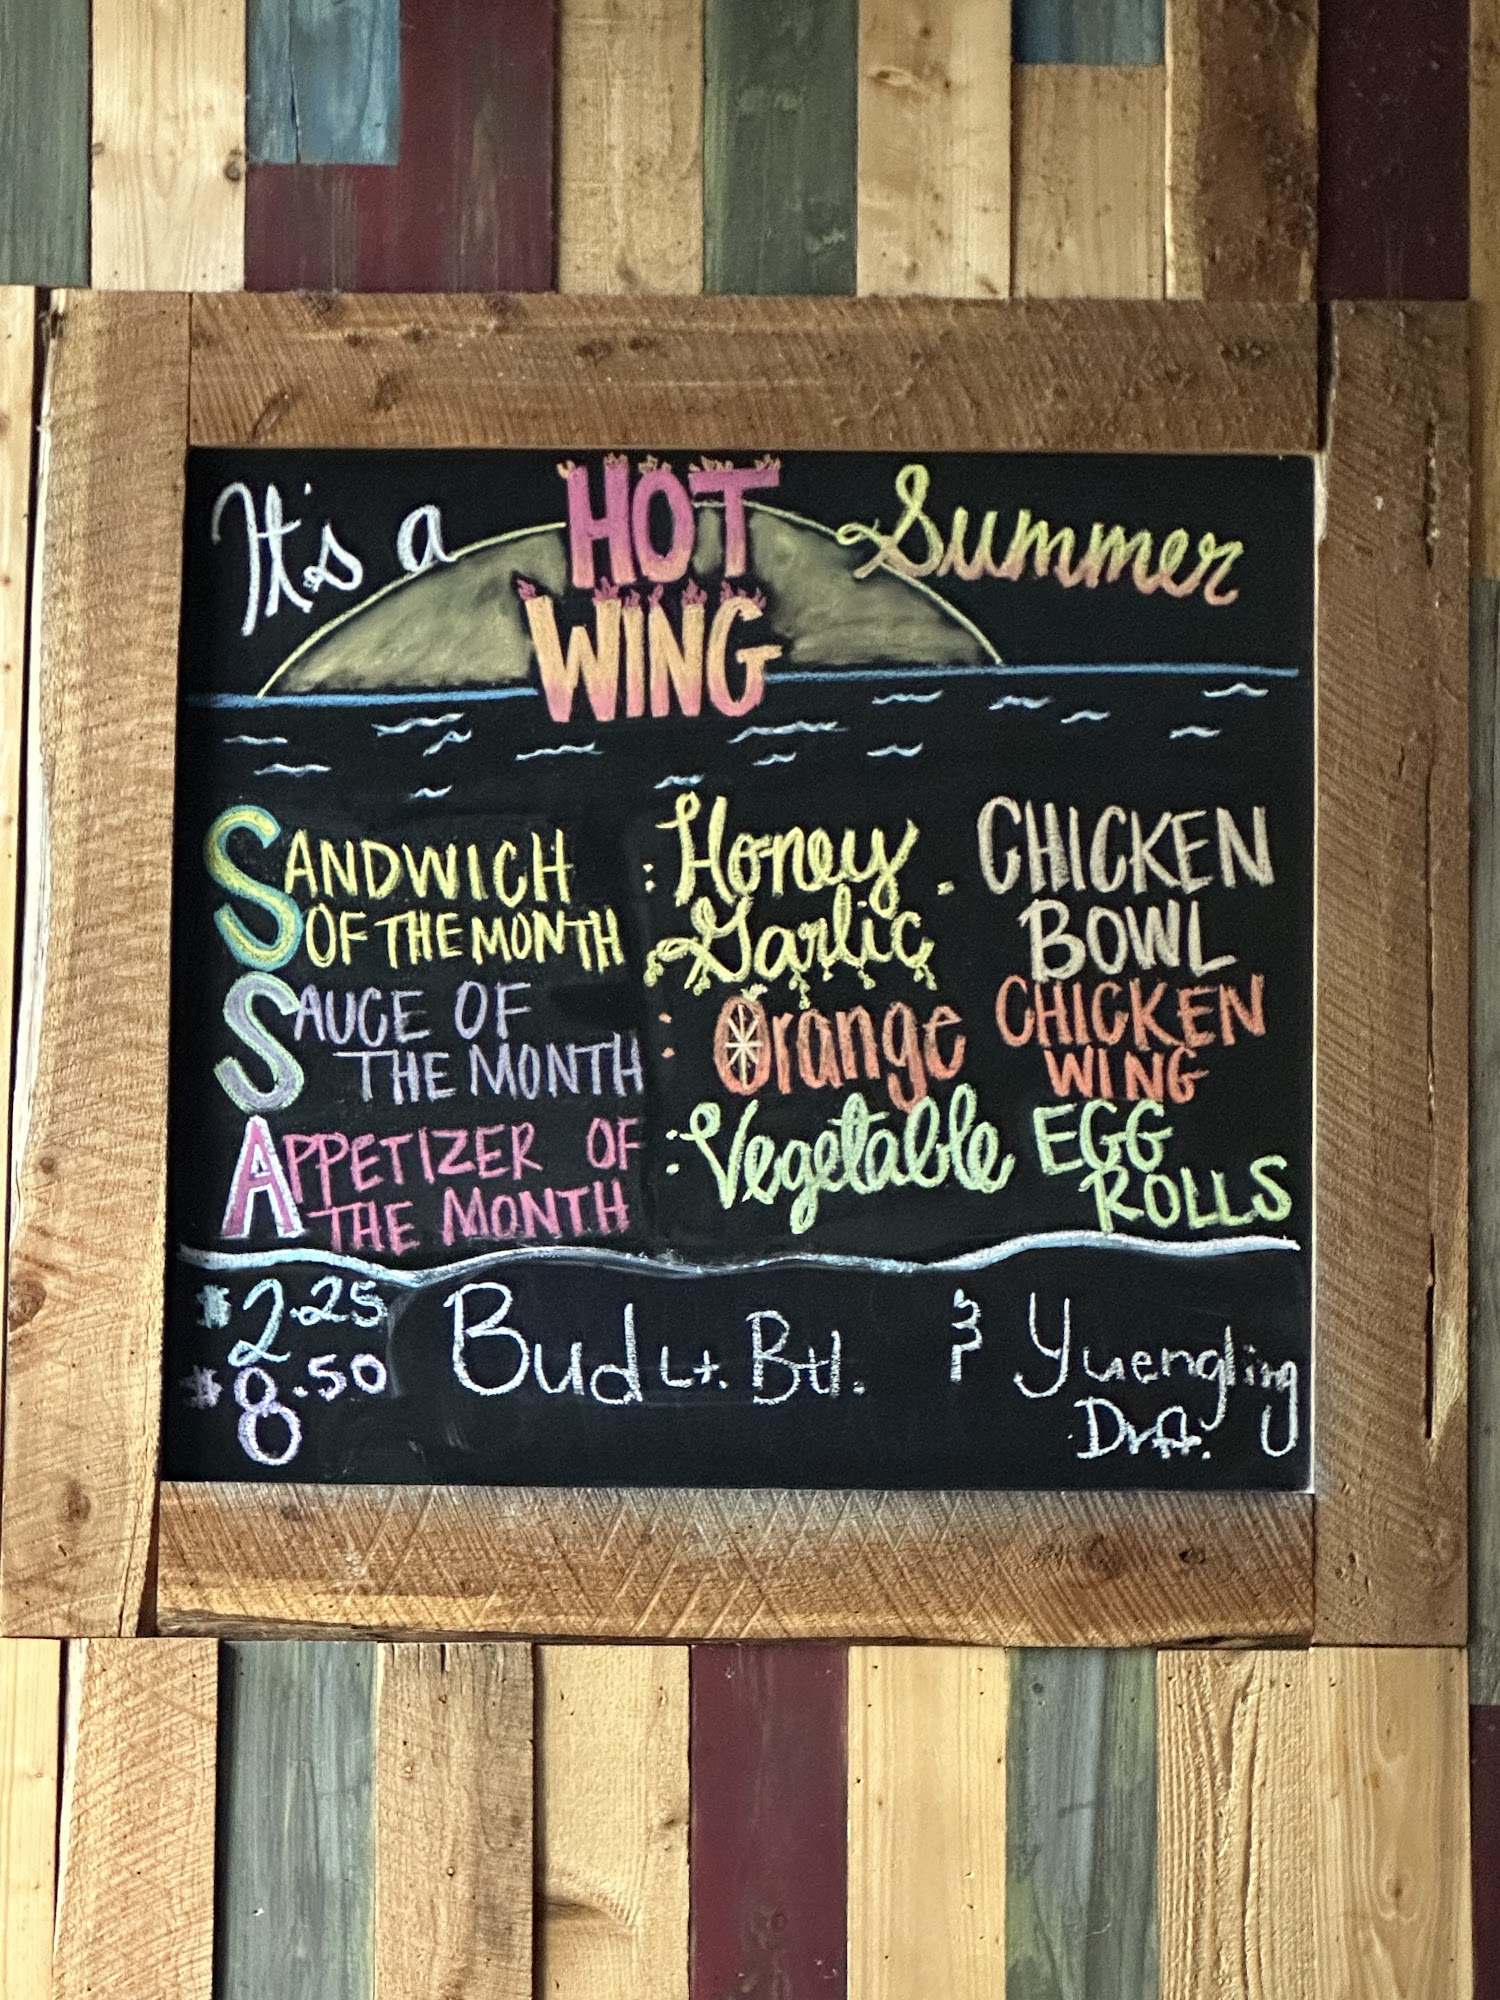 It's a HOT Summer
WING
SANDWICH : Honey . CHICKEN
OF THE MONTH Garlic BOWL
SAUCE OF : Orange CHICKEN
THE MONTH WING
APPETIZER OF : Vegetable EGG
THE MONTH ROLLS
$2.25 Bud Lt. Btl. & Yuengling
$8.50 Drft.